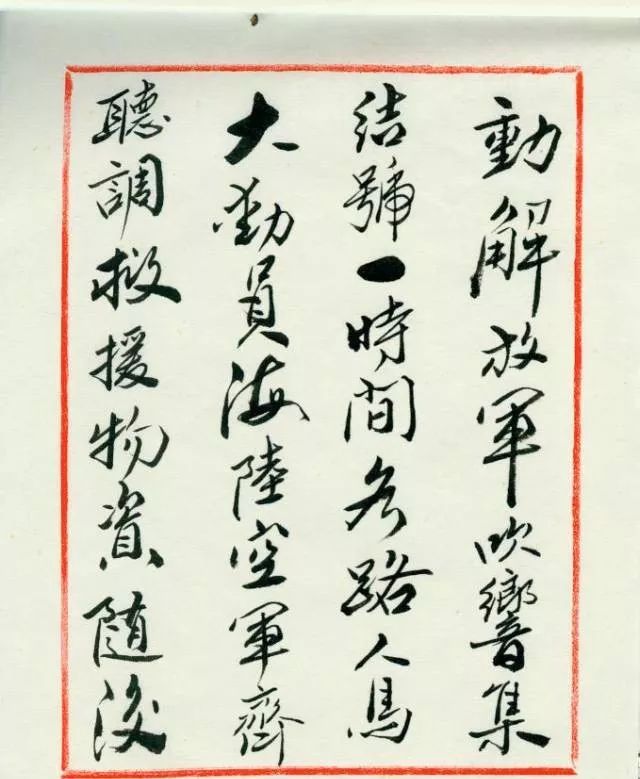 動解放軍吹響集
結號一時間各路人馬
大動員海陸空軍齊
聽調救援物資随後